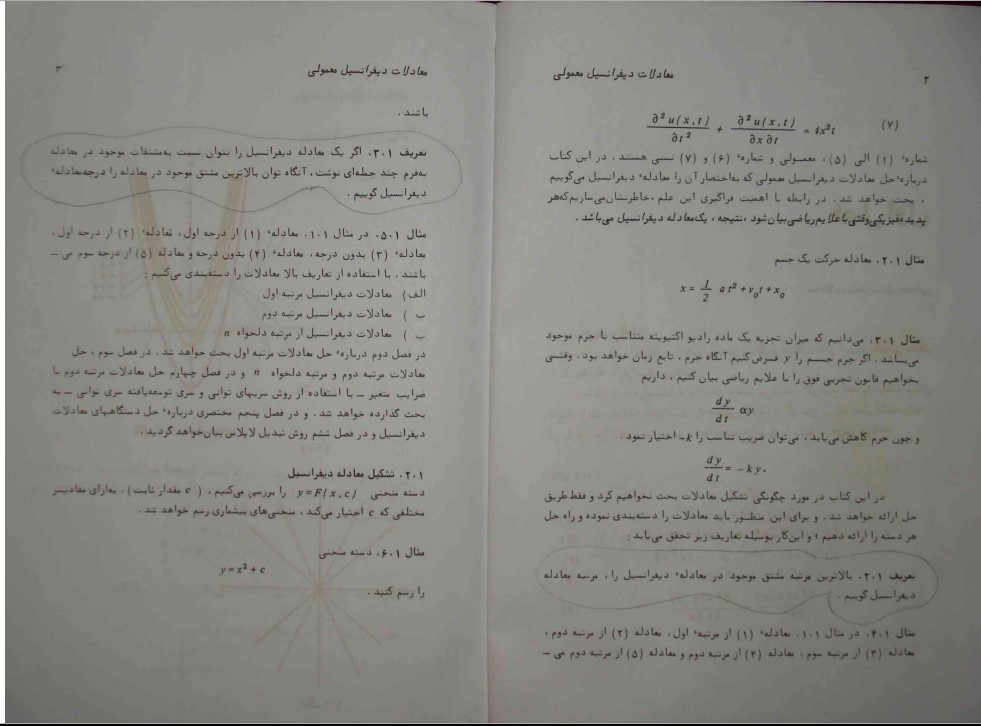 ۲
معادلات دیفرانسیل معمولی
∂²u(x,t)/∂t² + ∂²u(x,t)/∂x∂t = 4x²t (۷)
شمارهٔ (۱) الی (۵)، معمولی و شمارهٔ (۶) و (۷) نسبی هستند. در این کتاب
دربارهٔ حل معادلات دیفرانسیل معمولی که به‌اختصار آن را معادلهٔ دیفرانسیل می‌گوییم
، بحث خواهد شد. در رابطه با اهمیت فراگیری این علم، خاطرنشان می‌سازیم که هر
پدیده فیزیکی وقتی با علایم ریاضی بیان شود، نتیجه، یک معادله دیفرانسیل می‌باشد.
مثال ۲۰۱. معادله حرکت یک جسم
x = 1/2 at² + v₀t + x₀
مثال ۳۰۱. می‌دانیم که میزان تجزیه یک ماده رادیو اکتیویته متناسب با جرم موجود
می‌باشد. اگر جرم جسم را y فرض کنیم آنگاه جرم، تابع زمان خواهد بود. وقتی
بخواهیم قانون تجربی فوق را با علایم ریاضی بیان کنیم، داریم
dy/dt αy
و چون جرم کاهش می‌یابد، می‌توان ضریب تناسب را k- اختیار نمود.
dy/dt = -ky.
در این کتاب در مورد چگونگی تشکیل معادلات بحث نخواهیم کرد و فقط طریق
حل ارائه خواهد شد. و برای این منظور باید معادلات را دسته‌بندی نموده و راه حل
هر دسته را ارائه دهیم و این‌کار بوسیله تعاریف زیر تحقق می‌یابد:
تعریف ۲۰۱. بالاترین مرتبه مشتق موجود در معادلهٔ دیفرانسیل را، مرتبه معادله
دیفرانسیل گوییم.
مثال ۴۰۱. در مثال ۱۰۱. معادلهٔ (۱) از مرتبهٔ اول، معادله (۲) از مرتبه دوم،
معادله (۳) از مرتبه سوم، معادله (۴) از مرتبه دوم و معادله (۵) از مرتبه دوم می –
معادلات دیفرانسیل معمولی
۳
باشند.
تعریف ۳۰۱. اگر یک معادله دیفرانسیل را بتوان نسبت به‌مشتقات موجود در معادله
به‌فرم چند جمله‌ای نوشت، آنگاه توان بالاترین مشتق موجود در معادله را درجه‌معادلهٔ
دیفرانسیل گوییم.
مثال ۵۰۱. در مثال ۱۰۱. معادلهٔ (۱) از درجه اول، معادلهٔ (۲) از درجه اول،
معادلهٔ (۳) بدون درجه، معادلهٔ (۴) بدون درجه و معادله (۵) از درجه سوم می –
باشند. با استفاده از تعاریف بالا معادلات را دسته‌بندی می‌کنیم:
الف) معادلات دیفرانسیل مرتبه اول
ب) معادلات دیفرانسیل مرتبه دوم
پ) معادلات دیفرانسیل از مرتبه دلخواه n
در فصل دوم دربارهٔ حل معادلات مرتبه اول بحث خواهد شد. در فصل سوم، حل
معادلات مرتبه دوم و مرتبه دلخواه n و در فصل چهارم حل معادلات مرتبه دوم با
ضرایب متغیر – با استفاده از روش سریهای توانی و سری توسعه‌یافته سری توانی – به
بحث گذارده خواهد شد. و در فصل پنجم مختصری دربارهٔ حل دستگاههای معادلات
دیفرانسیل و در فصل ششم روش تبدیل لاپلاس بیان خواهد گردید.
۲۰۱. تشکیل معادله دیفرانسیل
دسته منحنی y=F(x,c) را بررسی می‌کنیم، (c مقدار ثابت). به‌ازای مقادیر
مختلفی که c اختیار می‌کند، منحنی‌های بیشماری رسم خواهد شد.
مثال ۶۰۱. دسته منحنی
y = x² + c
را رسم کنید.